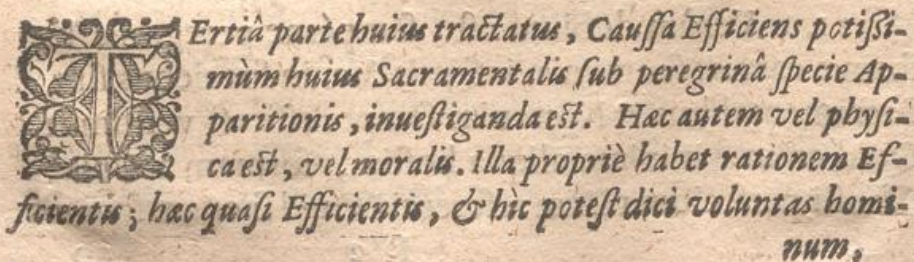 TErtiâ parte huius tractatus, Caussa Efficiens potißi-
mùm huius Sacramentalis sub peregrinâ specie Ap-
paritionis, inuestiganda est. Hæc autem vel physi-
ca est, vel moralis. Illa propriè habet rationem Ef-
ficientis; hæc quasi Efficientis, & hìc potest dici voluntas homi-
num,